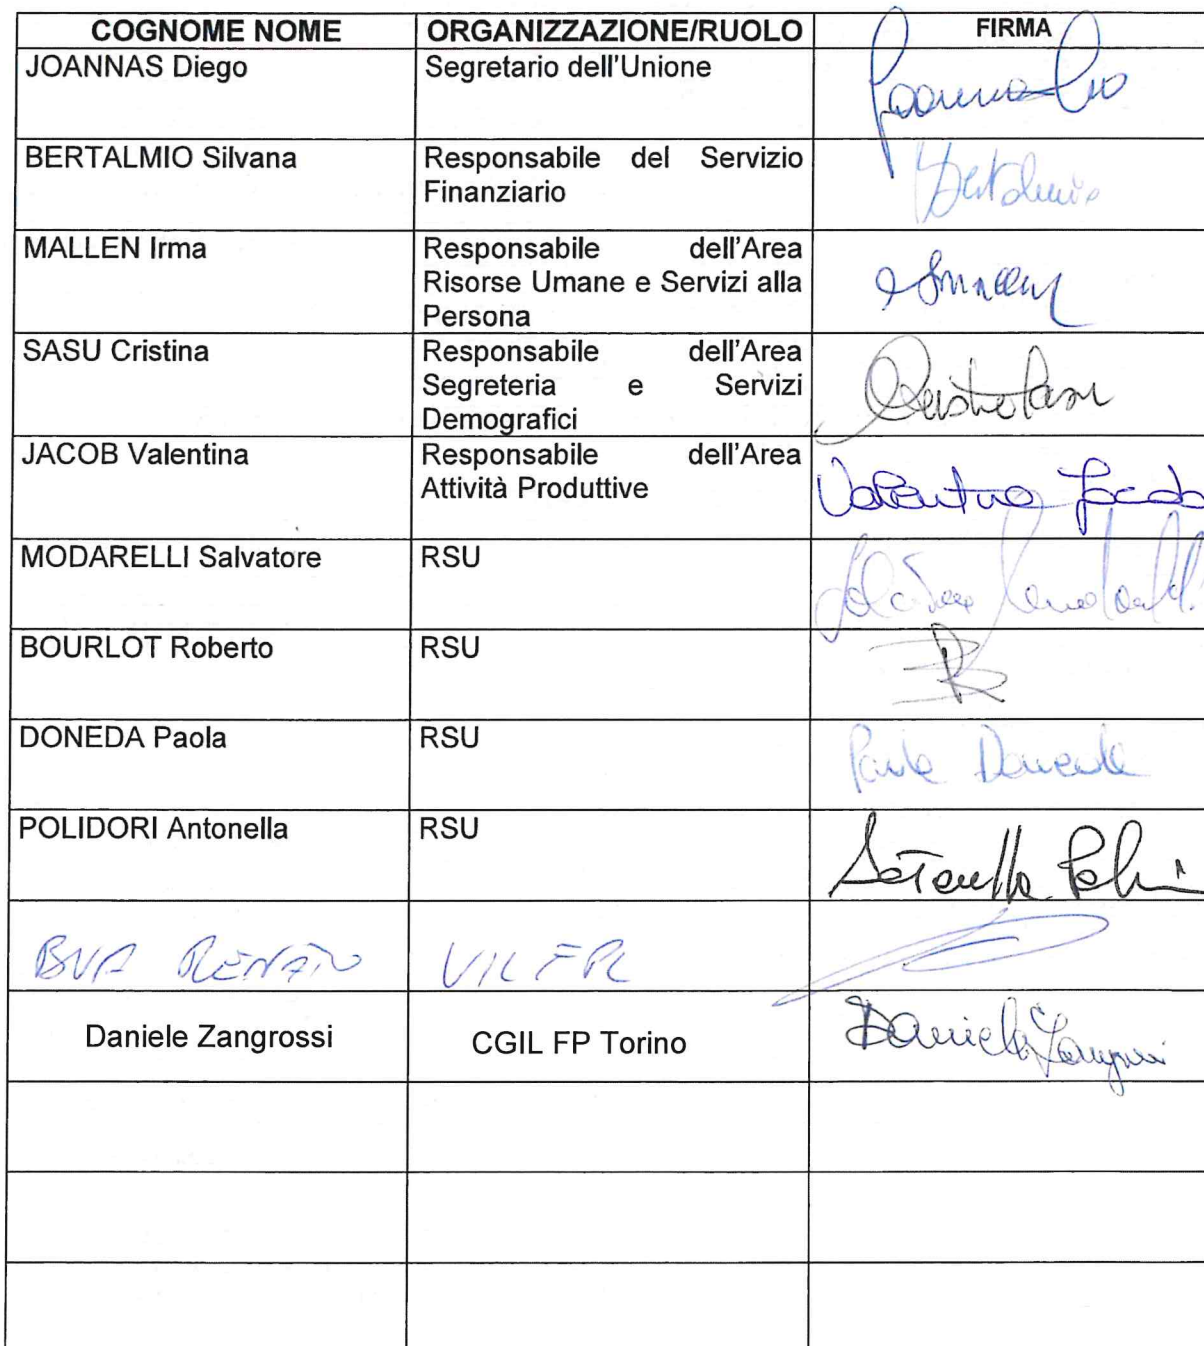 COGNOME NOME ORGANIZZAZIONE/RUOLO FIRMA
JOANNAS Diego Segretario dell'Unione
BERTALMIO Silvana Responsabile del Servizio
Finanziario
MALLEN Irma Responsabile dell'Area
Risorse Umane e Servizi alla
Persona
SASU Cristina Responsabile dell'Area
Segreteria e Servizi
Demografici
JACOB Valentina Responsabile dell'Area
Attività Produttive
Valentina Jacob
MODARELLI Salvatore RSU
BOURLOT Roberto RSU
DONEDA Paola RSU
Paola Doneda
POLIDORI Antonella RSU
BUA RENATO UIL FPL
Daniele Zangrossi CGIL FP Torino